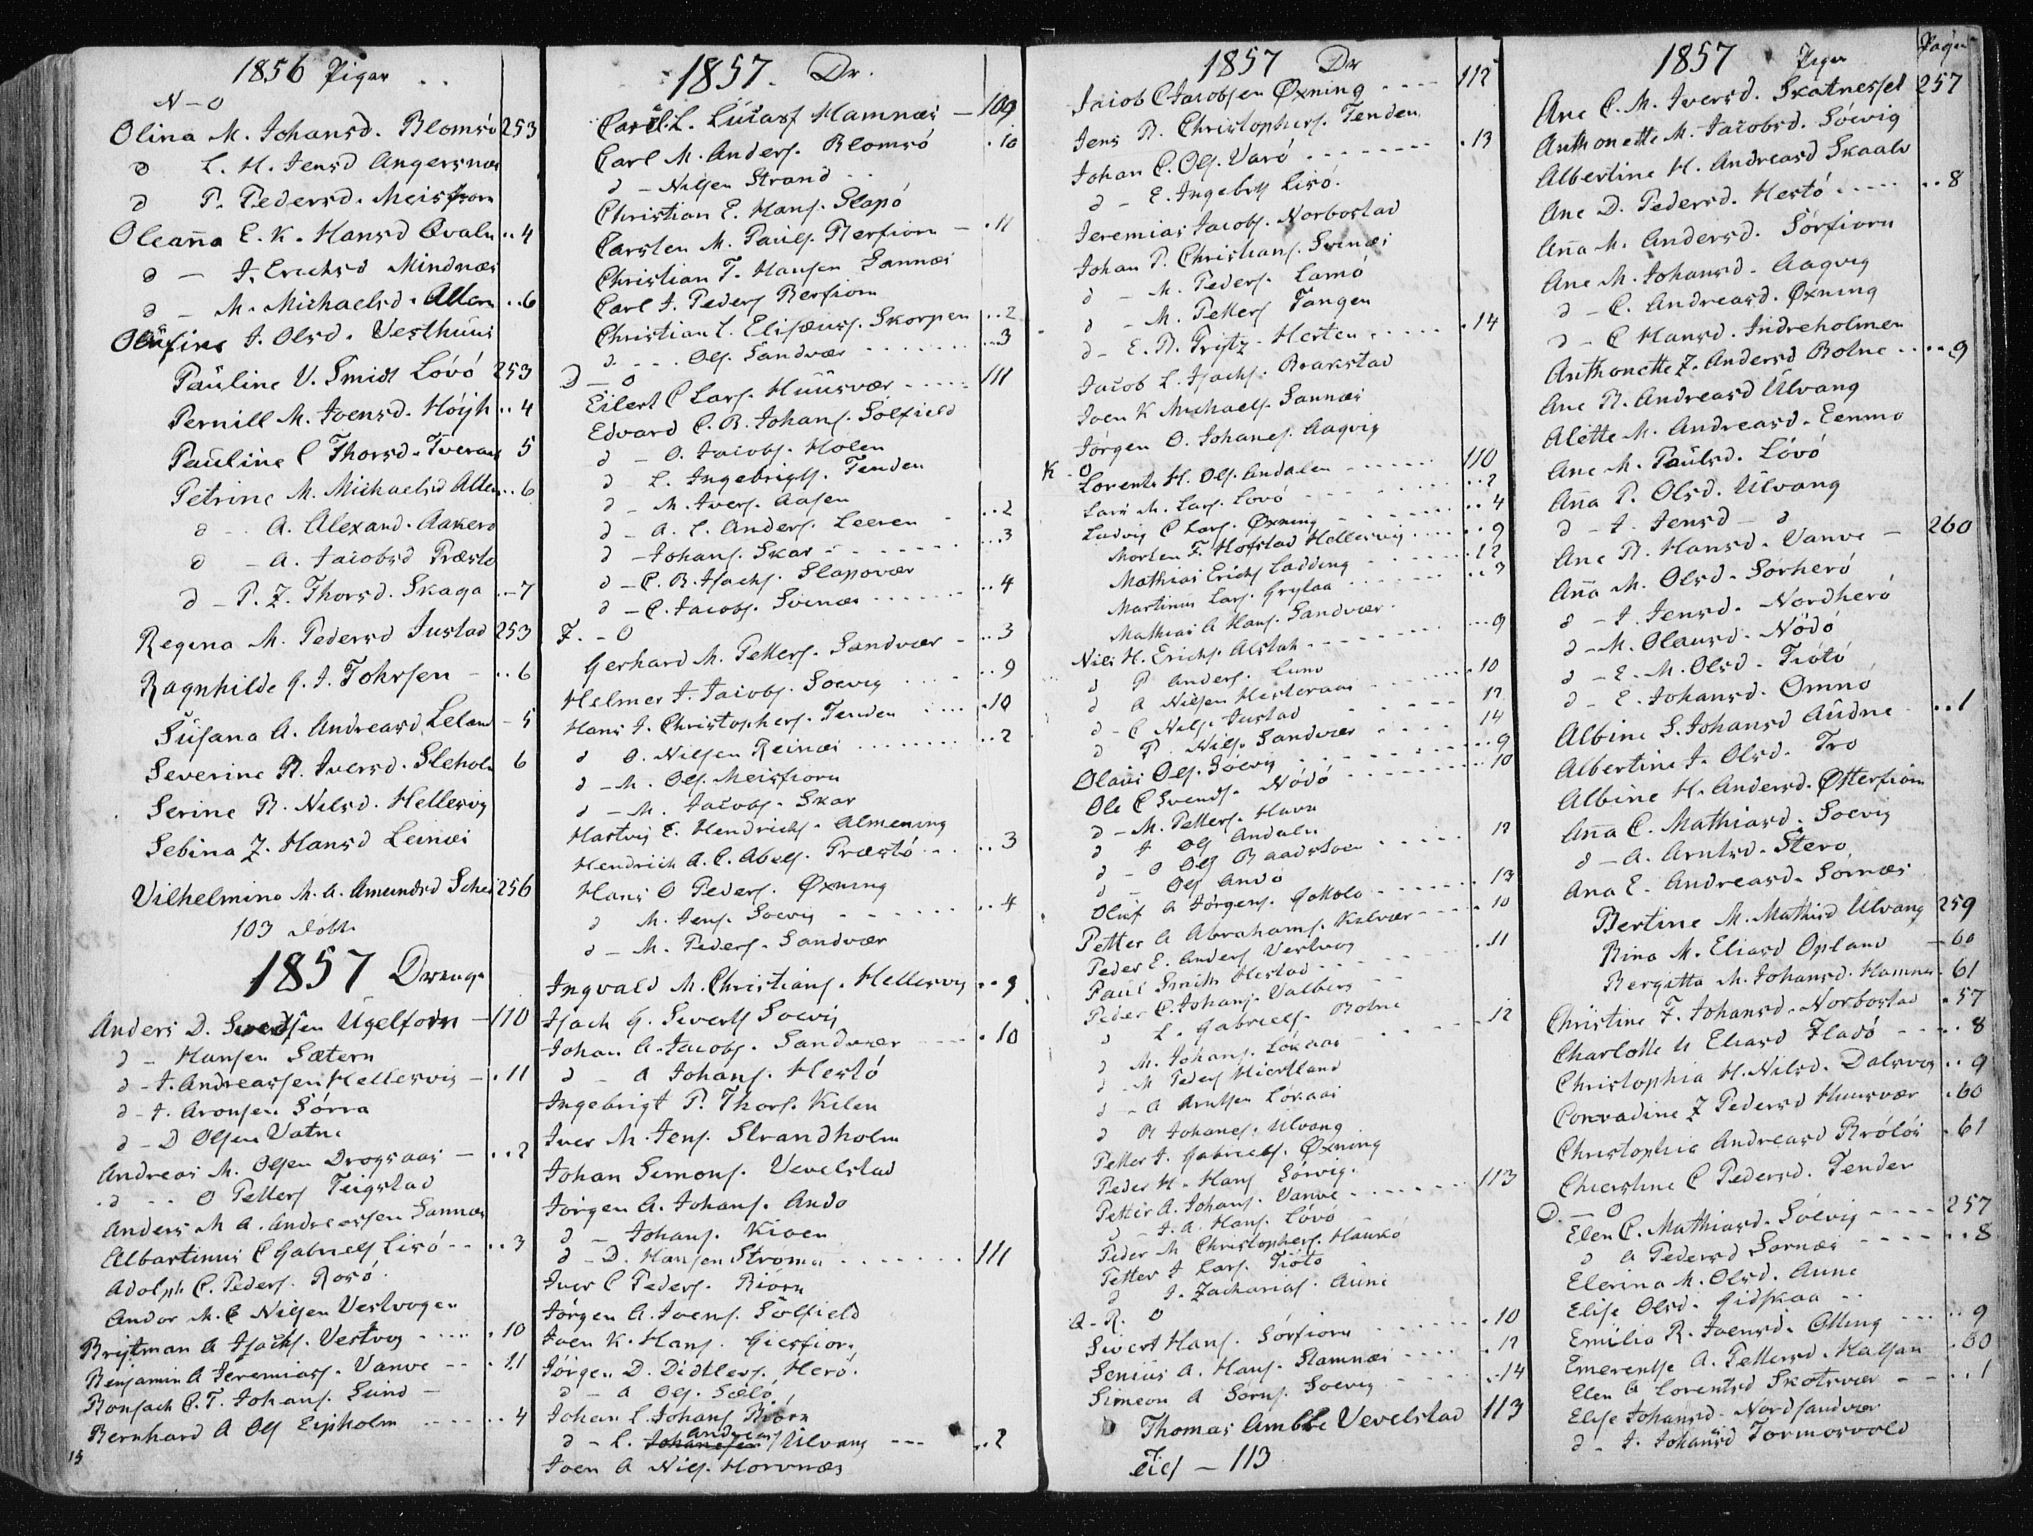 1856 Piger
N - O
Olina M. Johansd. Blomsö 253
d L. H. Jensd Angersnæs
d P. Pedersd. Meisfiorn
Oleaña E. K. Hansd Qvaln ..4
d - J. Erichsd Mindnæs
d - M. Michaelsd. Alten ..6
Olufine J. Olsd. Vesthuus
Pauline V. Smidt Lóvó 253
Pernill M. Ivensd. Höyh ..4
Pauline C Thorsd. Tveraa 5
Petrine M. Michaelsd Alten ..6
d - A. Alexand. Aakerö
d - A. Jacobsd Præstö
d - P. Z. Thorsd. Skaga ..7
Regina M. Pedersd Justad 253
Ragnhilde G. J. Fohrsen - ..6
Susana A. Andreasd Leland - 5
Severine R. Iversd. Sleholm 6
Serine R. Nilsd. Hellesvig
Sebina Z. Hansd Leinæs
Vilhelmine M. A. Amundsd 256
103 döbte
1857 Drenge
Anders D. Svendsen Ugelfoern -110
d - Hansen Sætern
d - J. Andreassen Hellesvig - .11
d - J. Aronsen Sörra
d - D Olsen Vatne
Andreas M. Olsen Drogsaas - ..2
d - O Petters Teigstad
Anders M A. Andreassen Sannæs
Albartinus C Gabriels Lisö -- ..3
Adolph C. Peders. Rosö
Andor M. C Nilsen Vestvogen
Bristman A Isachs. Vestvog .10
Benjamin A Jeremias. Vanve -- .11
Ronsach C. T. Johans. Sund -
Bernhard A Ols Eipholm ---- ..4
15
1857. Dr.
Carl L. Lucas Hamnæs - 109
Carl M. Anders. Blomsó .10
d - Nilsen Strand
Christian E. Hans. Slapó
Carsten M. Pauls. Berfiorn - .11
Christian T. Hansen Sannæs
Carl J. Peders Berfiorn
Christian L. Elisæus. Skorpen ..2
d. - - Ols. Sandvær ..3
D - O
Eilert C Lars. Huusvær 111
Edvard C. B. Johans. Solfield
d - O. Jacobs. Holen
d L. Ingebrigts. Tenden
d - M. Ivers. Aasen
d - A. L. Anders. Leeren - ..2
d - Johans. Skar ..3
d - C. B. Isachs. Slapovær
d - C. Jacobs. Svinæs ..4
F. - O
Gerhard M. Petters. Sandvær - ..3
Helmer J. Jacobs. Soevig ..9
Hans J. Christophers. Tenden .10
d O. Nilsen Reinæs ..2
d - M. Ols. Meisfiorn
d - M. Jacobs. Skar
Hartvig E. Hendrichs. Almening
Hendrich A. C. Abels. Præstó ..3
Hans O Peders. Öxning
d M. Jens. Soevig ..4
d - M. Peders. Sandvær
Ingvald M. Christians. Hellesvig ..9
Isach G. Siverts Soevig
Johan A. Jacobs. Sandvær .10
d - A Johans. Hestó
Ingebrigt P. Thors. Kilen
Iver M. Jens. Strandholm
Johan Simons. Vevelstad
Jörgen A. Johans. Andö
d - Johans. Kioen
d - D. Hansen Strömn 111
Iver C Peders. Biörn
Jörgen A. Ivens. Solfield
Iven K. Hans. Giesfiorn
Jörgen D. Didtlefs. Heró.
d - A Ols. Sóló
Johan L. Johans Biörn
d - L. Johansen Andreas Ulvang --- ..2
Iven A Nils. Horvnæs
1857 Dr
Jacob C Jacobsen Öxning 112
Jens R. Christophers. Tenden
Johan C. Ols. Varó .13
d - E. Ingebrigts Lisó.
Jeremias Jacobs. Norbostad
Johan P. Christians. Svinæs
d - M. Peders. Lamó
d - M. Petters Tangen
d - E. N. Fritz. Hesten .14
Jacob L. Isachs. Brakstad
Iven K Michaels. Sannæs
Jörgen O. Johanes. Aagvig
K - O
Lorents H. Ols. Andalen 110
Lars M. Lars. Lovó ..2
Ludvig C Lars. Öxning ..4
Morten F. Hofstad Hellesvig ..9
Mathias Erichs Ladding .12
Martinus Lars. Grylaa ..3
Mathias A Hans. Sandvær.
Nils H. Erichs. Alstah ..9
d P Anders. Lunv
d A Nilsen Hesteraas .10
d - C Nils. Justad 12
d P. Nils. Sandvær 14
Olaus Ols. Sóevig ..9
Ole C Svends. Nódó 10
d - M. Petters. Havn
d J Ols Andaln
d - O Ols Baadstoen 12
d - Ols Andö
Oluf A Jörgens. Gakolo .13
Petter A Abrahams. Kalvær .10
Peder E. Anders Vestvog
Paul Smith Hestad .11
Peder C. Johans. Valberg
d L. Gabriels. Bolne
d M. Johans. Lókaas .12
d - M Peders Hiertland
d - A Arntsen Lókaas
d R Johanes. Ulvang
Petter J. Gabriels. Öxning
Peder H. Hans Sórvig.
Petter A. Johans. Vanve 113
d - J. A. Hans. Lóvó
Peder M Christophers. Hauskó
Petter J Lars. Tiótó
d J. Zacharias. Aune
Q - R. O
Sivert Hans. Sórfiorn .10
Senius A. Hans. Stamnæs .12
Simeon A Sorns. Soevig .14
Thomas Amble Vevelstad 113
Til - 113
1857 Piger Pagin
Ane C. M. Iversd. Skatnesset 257
Anthonette M. Jacobsd. Sóevig
Albertine H. Andreasd Skaalv
Ane D. Pedersd. Hestó ..8
Aña M. Andersd. Sórfiorn
Ane M. Johansd. Aagvig
d - C. Andreasd. Öxning
d - C Hansd. Indreholmen
Anthonette Z. Andersd Bolne ..9
Ane R. Andreasd Ulvang
Alette M. Andreasd. Eenmo
Ane M. Paulsd. Lóvó
Aña P. Olsd. Ulvang
d - J. Jensd - d
Ane R. Hansd. Vanve - 260
Aña M. Olsd. Sorheró
d - J. Jensd. Nordheró
d - M. Olausd. Nódó
d - E. M. Olsd. Tiótó
d - E. Johansd. Omnó
Albine S. Johansd Audne ..1
Albertine J. Olsd. Tro
Albine H. Andersd. Otterfiorn
Aña C. Mathiasd. Soevig
d - A. Arntsd. Steró
Ana E. Andreasd. Sórnæs
Bertine M. Mathisd Ulvang 259
Rina M. Eliasd Opland -60
Bergitta M. Johansd. Hamnæs .61
Christine F. Johansd. Norbostad .57
Charlotte U Eliasd Fladó ..8
Christophia H. Nilsd. Dalsvog ..9
Conradine Z Pedersd Huusvær .60
Christophia Andreasd Brólós .61
Chierstine C Pedersd. Tender
D. - O
Elen C. Mathiasd. Soevig ---- 257
d A Pedersd Sornæs ..8
Elerina M. Olsd. Aune
Elise Olsd. Gidskaa
Emilia R. Ivensd. Olting ..9
Emerentse A. Pettersd. Halsan .60
Elen A Lorentsd Skotsvær - ..1
Elise Johansd. Nordsandvær
d - J. Johansd Tormosvold